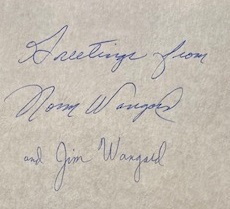 Greetings from
Norm Wangard
and Jim Wangard